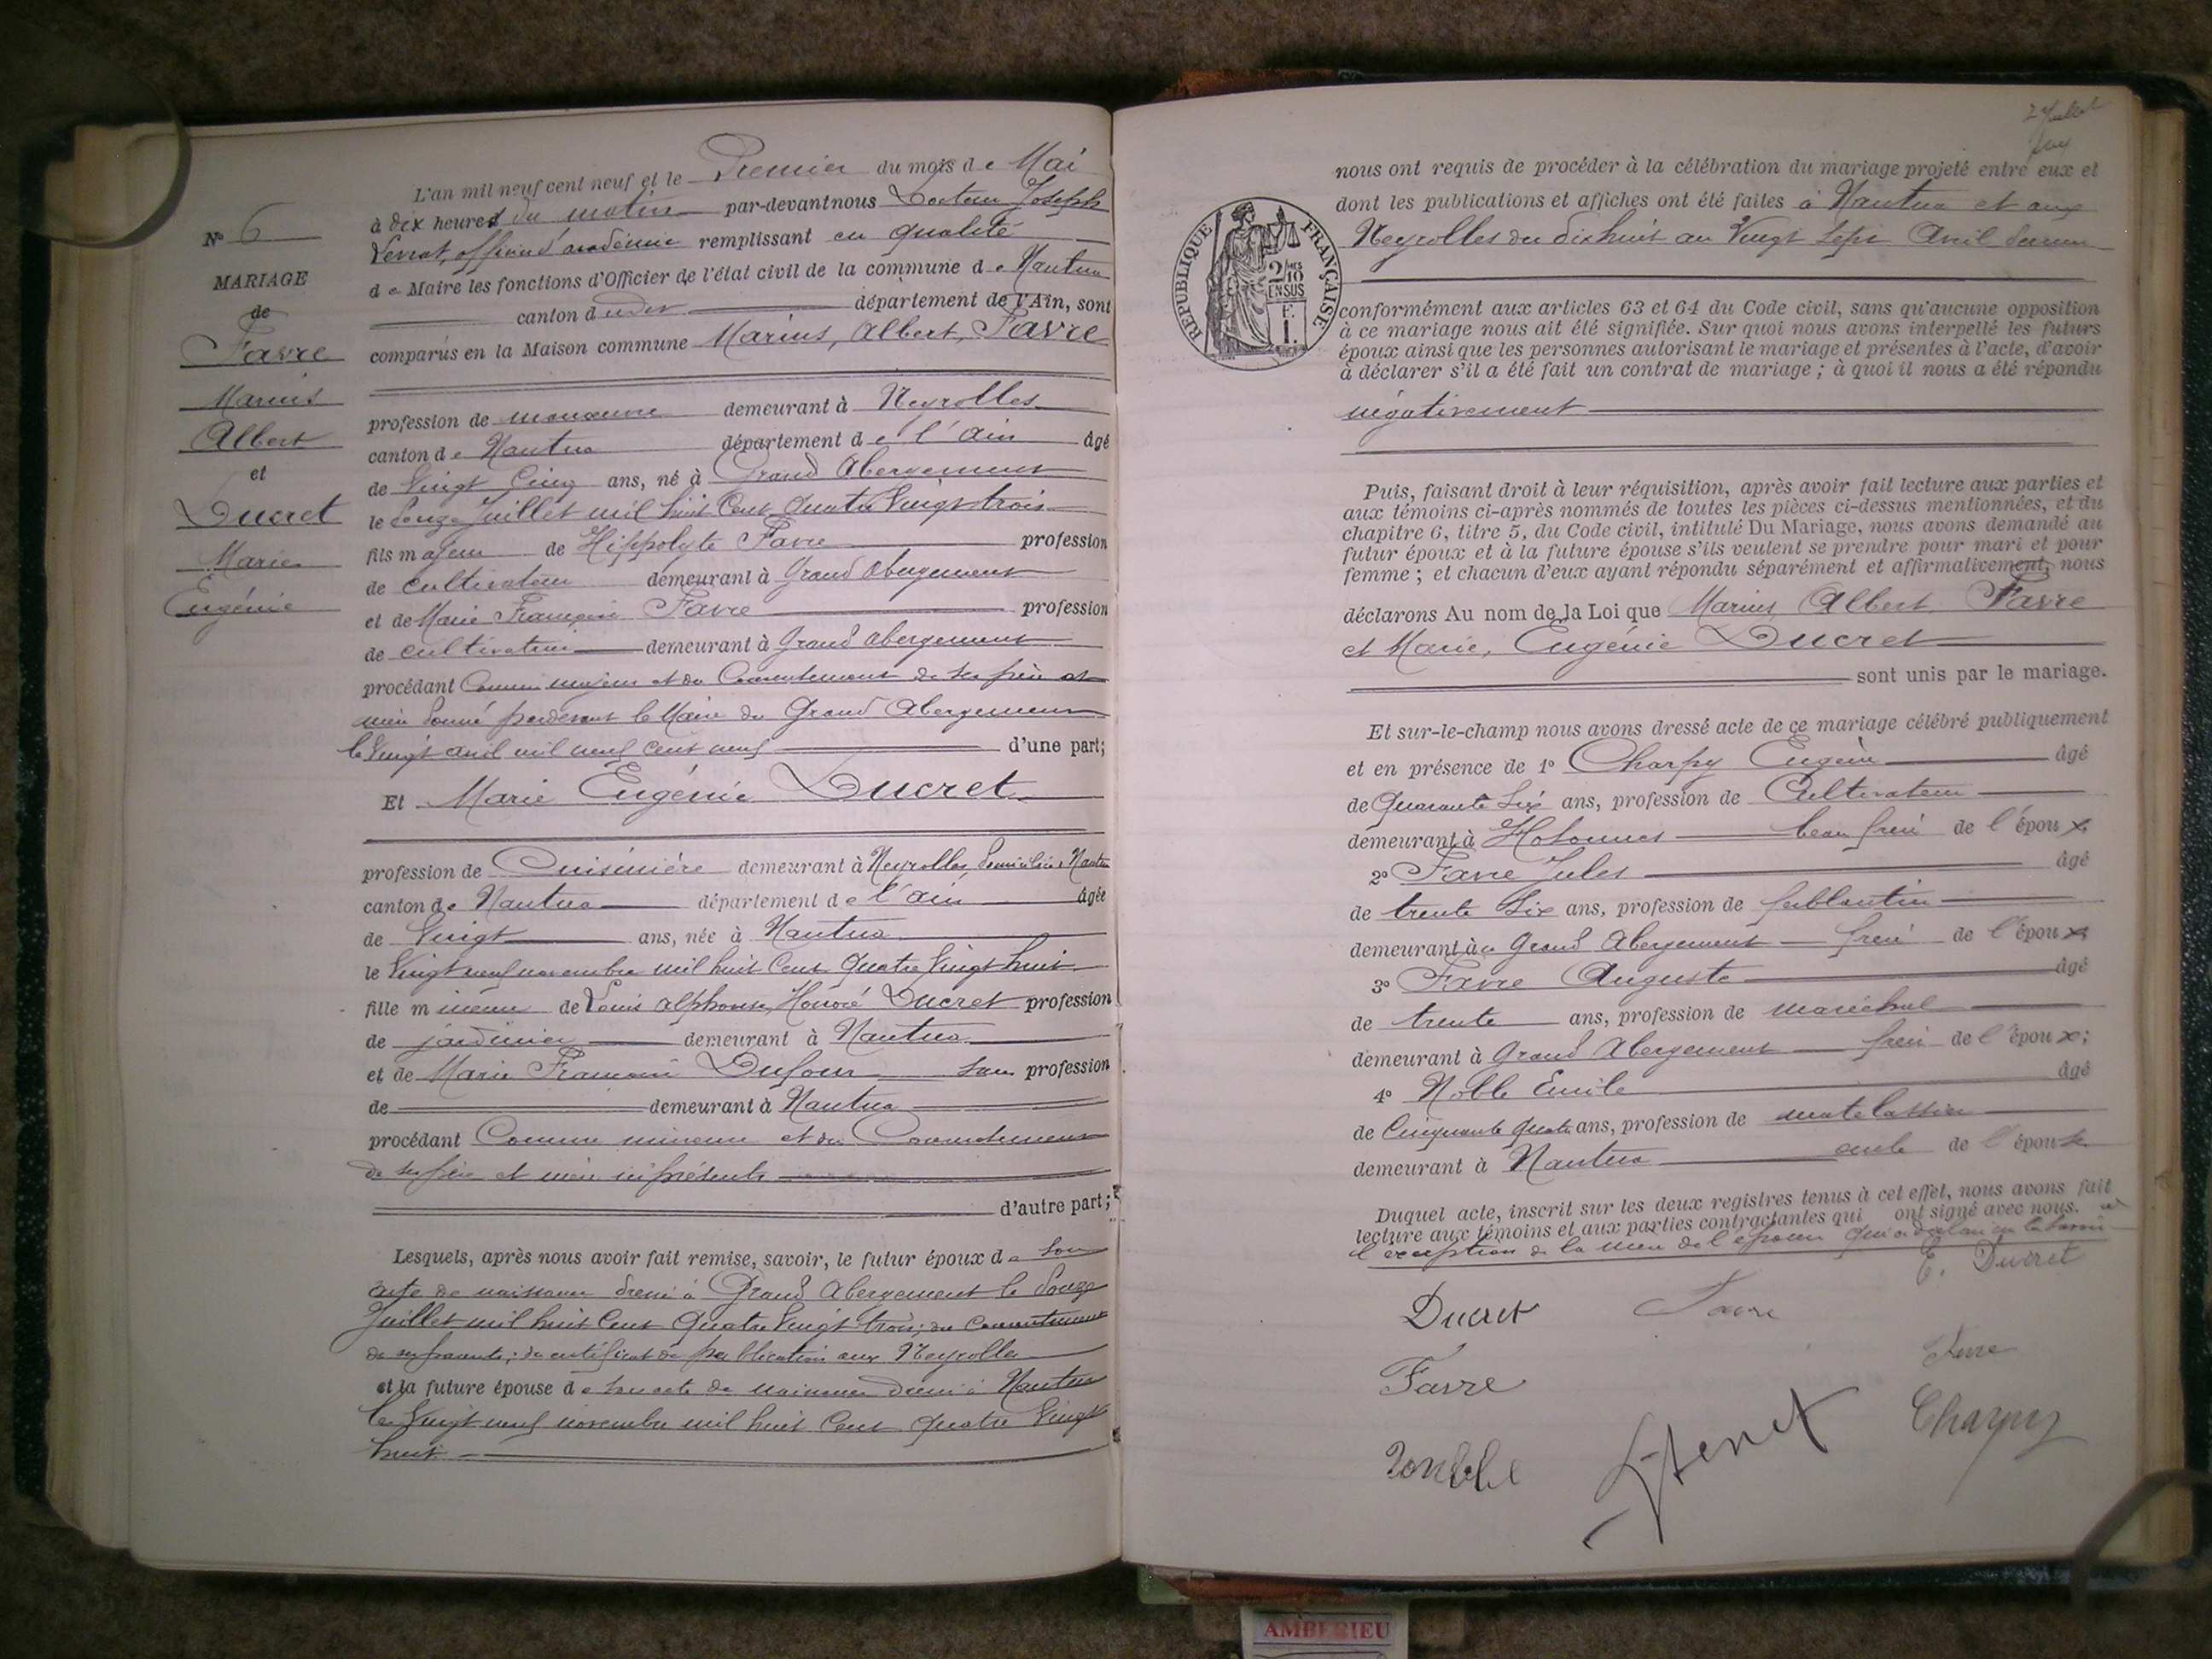 L'an mil neuf cent neuf et le Premier du mois de Mai
à dix heures du matin par-devant nous Docteur Joseph
officier d'académie remplissant en qualité
de Maire les fonctions d'Officier de l'état civil de la commune de Nantua
canton dudit département de l'Ain, sont
comparus en la Maison commune Marius, Albert, Favre
N° 6
MARIAGE
de
Favre
Marius
Albert
et
Ducret
Marie
Eugénie
profession de manœuvre demeurant à Neyrolles
canton de Nantua département de l'Ain âgé
de Vingt Cinq ans, né à Grand Abergement
le Douze Juillet mil huit Cent Quatre Vingt trois
fils majeur de Hippolyte Favre profession
de cultivateur demeurant à Grand Abergement
et de Marie Françoise Favre profession
de cultivatrice demeurant à Grand Abergement
procédant Comme majeur et du Consentement de ses père et
mère donné pardevant le Maire du Grand Abergement
le Vingt avril mil neuf cent neuf d'une part;
Et Marie Eugénie Ducret
profession de Cuisinière demeurant à Neyrolles, domiciliée à Nantua
canton de Nantua département de l'Ain âgée
de Vingt ans, née à Nantua
le Vingt neuf novembre mil huit Cent Quatre Vingt huit
fille mineure de Louis Alphonse, Honoré Ducret profession
de jardinier demeurant à Nantua
et de Marie Françoise Dufour sans profession
de demeurant à Nantua
procédant Comme mineure et du Consentement
de ses père et mère ici présents
d'autre part;
Lesquels, après nous avoir fait remise, savoir, le futur époux de son
acte de naissance dressé à Grand Abergement le Douze
Juillet mil huit Cent Quatre Vingt trois; du Consentement
de ses parents; du certificat de publication aux Neyrolles
et la future épouse de son acte de naissance dressé à Nantua
le Vingt neuf novembre mil huit Cent Quatre Vingt
huit
2 Juillet
nous ont requis de procéder à la célébration du mariage projeté entre eux et
dont les publications et affiches ont été faites à Nantua et aux
Neyrolles du dix huit au Vingt Sept Avril dernier
RÉPUBLIQUE FRANÇAISE
2/10
EN SUS
F.
1.
conformément aux articles 63 et 64 du Code civil, sans qu'aucune opposition
à ce mariage nous ait été signifiée. Sur quoi nous avons interpellé les futurs
époux ainsi que les personnes autorisant le mariage et présentes à l'acte, d'avoir
à déclarer s'il a été fait un contrat de mariage ; à quoi il nous a été répondu
négativement
Puis, faisant droit à leur réquisition, après avoir fait lecture aux parties et
aux témoins ci-après nommés de toutes les pièces ci-dessus mentionnées, et du
chapitre 6, titre 5, du Code civil, intitulé Du Mariage, nous avons demandé au
futur époux et à la future épouse s'ils veulent se prendre pour mari et pour
femme ; et chacun d'eux ayant répondu séparément et affirmativement, nous
déclarons Au nom de la Loi que Marius Albert Favre
et Marie, Eugénie Ducret
sont unis par le mariage.
Et sur-le-champ nous avons dressé acte de ce mariage célébré publiquement
et en présence de 1° Charpy Eugène âgé
de Quarante Six ans, profession de Cultivateur
demeurant à Hotonnes beau frère de l'époux
2° Favre Jules âgé
de trente Six ans, profession de ferblantier
demeurant à Grand Abergement frère de l'époux
3° Favre Auguste âgé
de trente ans, profession de maréchal
demeurant à Grand Abergement frère de l'époux;
4° Noblle Emile âgé
de Cinquante Quatre ans, profession de matelassier
demeurant à Nantua oncle de l'épouse
Duquel acte, inscrit sur les deux registres tenus à cet effet, nous avons fait
lecture aux témoins et aux parties contractantes qui ont signé avec nous. à
l'exception de la mère de l'épouse qui a déclaré ne le savoir
E. Ducret
Ducret Favre
Favre
Charpy
AMBERIEU